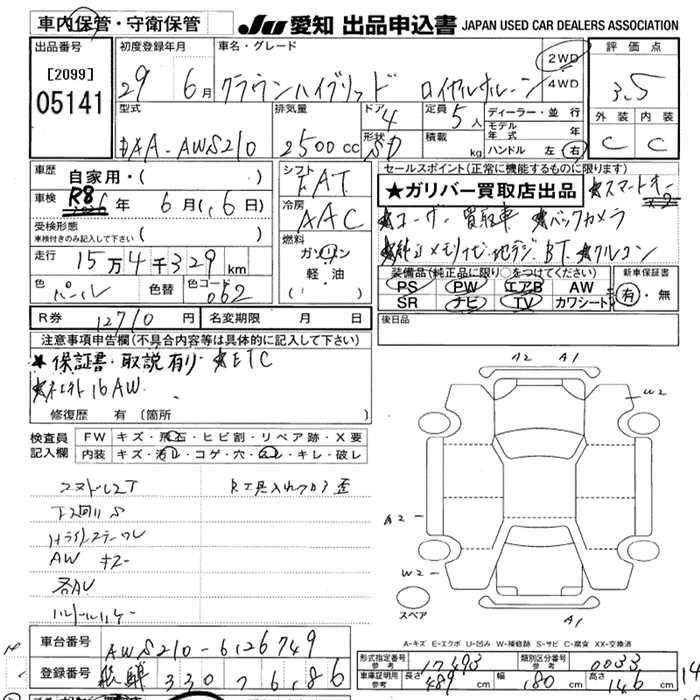 車内保管・守衛保管
JU 愛知 出品申込書 JAPAN USED CAR DEALERS ASSOCIATION
出品番号
[2099]
05141
初度登録年月
29 6月
車名・グレード
クラウンハイブリッド ロイヤルサルーン
2WD
4WD
評価点
3.5
外装 内装
C C
型式
DAA-AWS210
排気量
2500cc
ドア 4
形状 SD
定員 5人
積載 kg
ディーラー・並行
モデル年式 年
ハンドル 左 右
車歴
自家用・( )
車検
R8年 6月(16日)
受検形態
車検付きのみ記入して下さい ( )
走行
15万4千329km
色
パール
色替
色コード
062
シフト
FAT
冷房
AAC
燃料
ガソリン
軽・油
( )
セールスポイント(正常に機能するものに限ります)
★ガリバー買取店出品 ★スマートキー
×2
★ユーザー買取車 ★バックカメラ
★純正メモリナビ・地デジ BT ★クルコン
装備品(純正品に限り○をつけてください)
PS PW エアB AW
SR ナビ TV カワシート
新車保証書
有・無
R券 12710円
名変期限 月 日
後日品
注意事項申告欄(不具合内容等は具体的に記入して下さい)
★保証書・取説有り ★ETC
16AW
修復歴 有 (箇所 )
検査員記入欄
FW キズ・飛石・ヒビ割・リペア跡・X要
内装 キズ・汚レ・コゲ・穴・スレ・キレ・破レ
下廻りS
AW キズ
各AU
A2 A1
W2
A2
W2
A1
スペア
A-キズ E-エクボ U-凹み W-補修跡 S-サビ C-腐食 XX-交換済
車台番号
AWS210-6126749
登録番号
飛騨 330 7 6186
形式指定番号 参考 17493
類別区分番号 参考 0033
車庫証明用 参考 長さ 489cm 幅 180cm 高さ 146cm